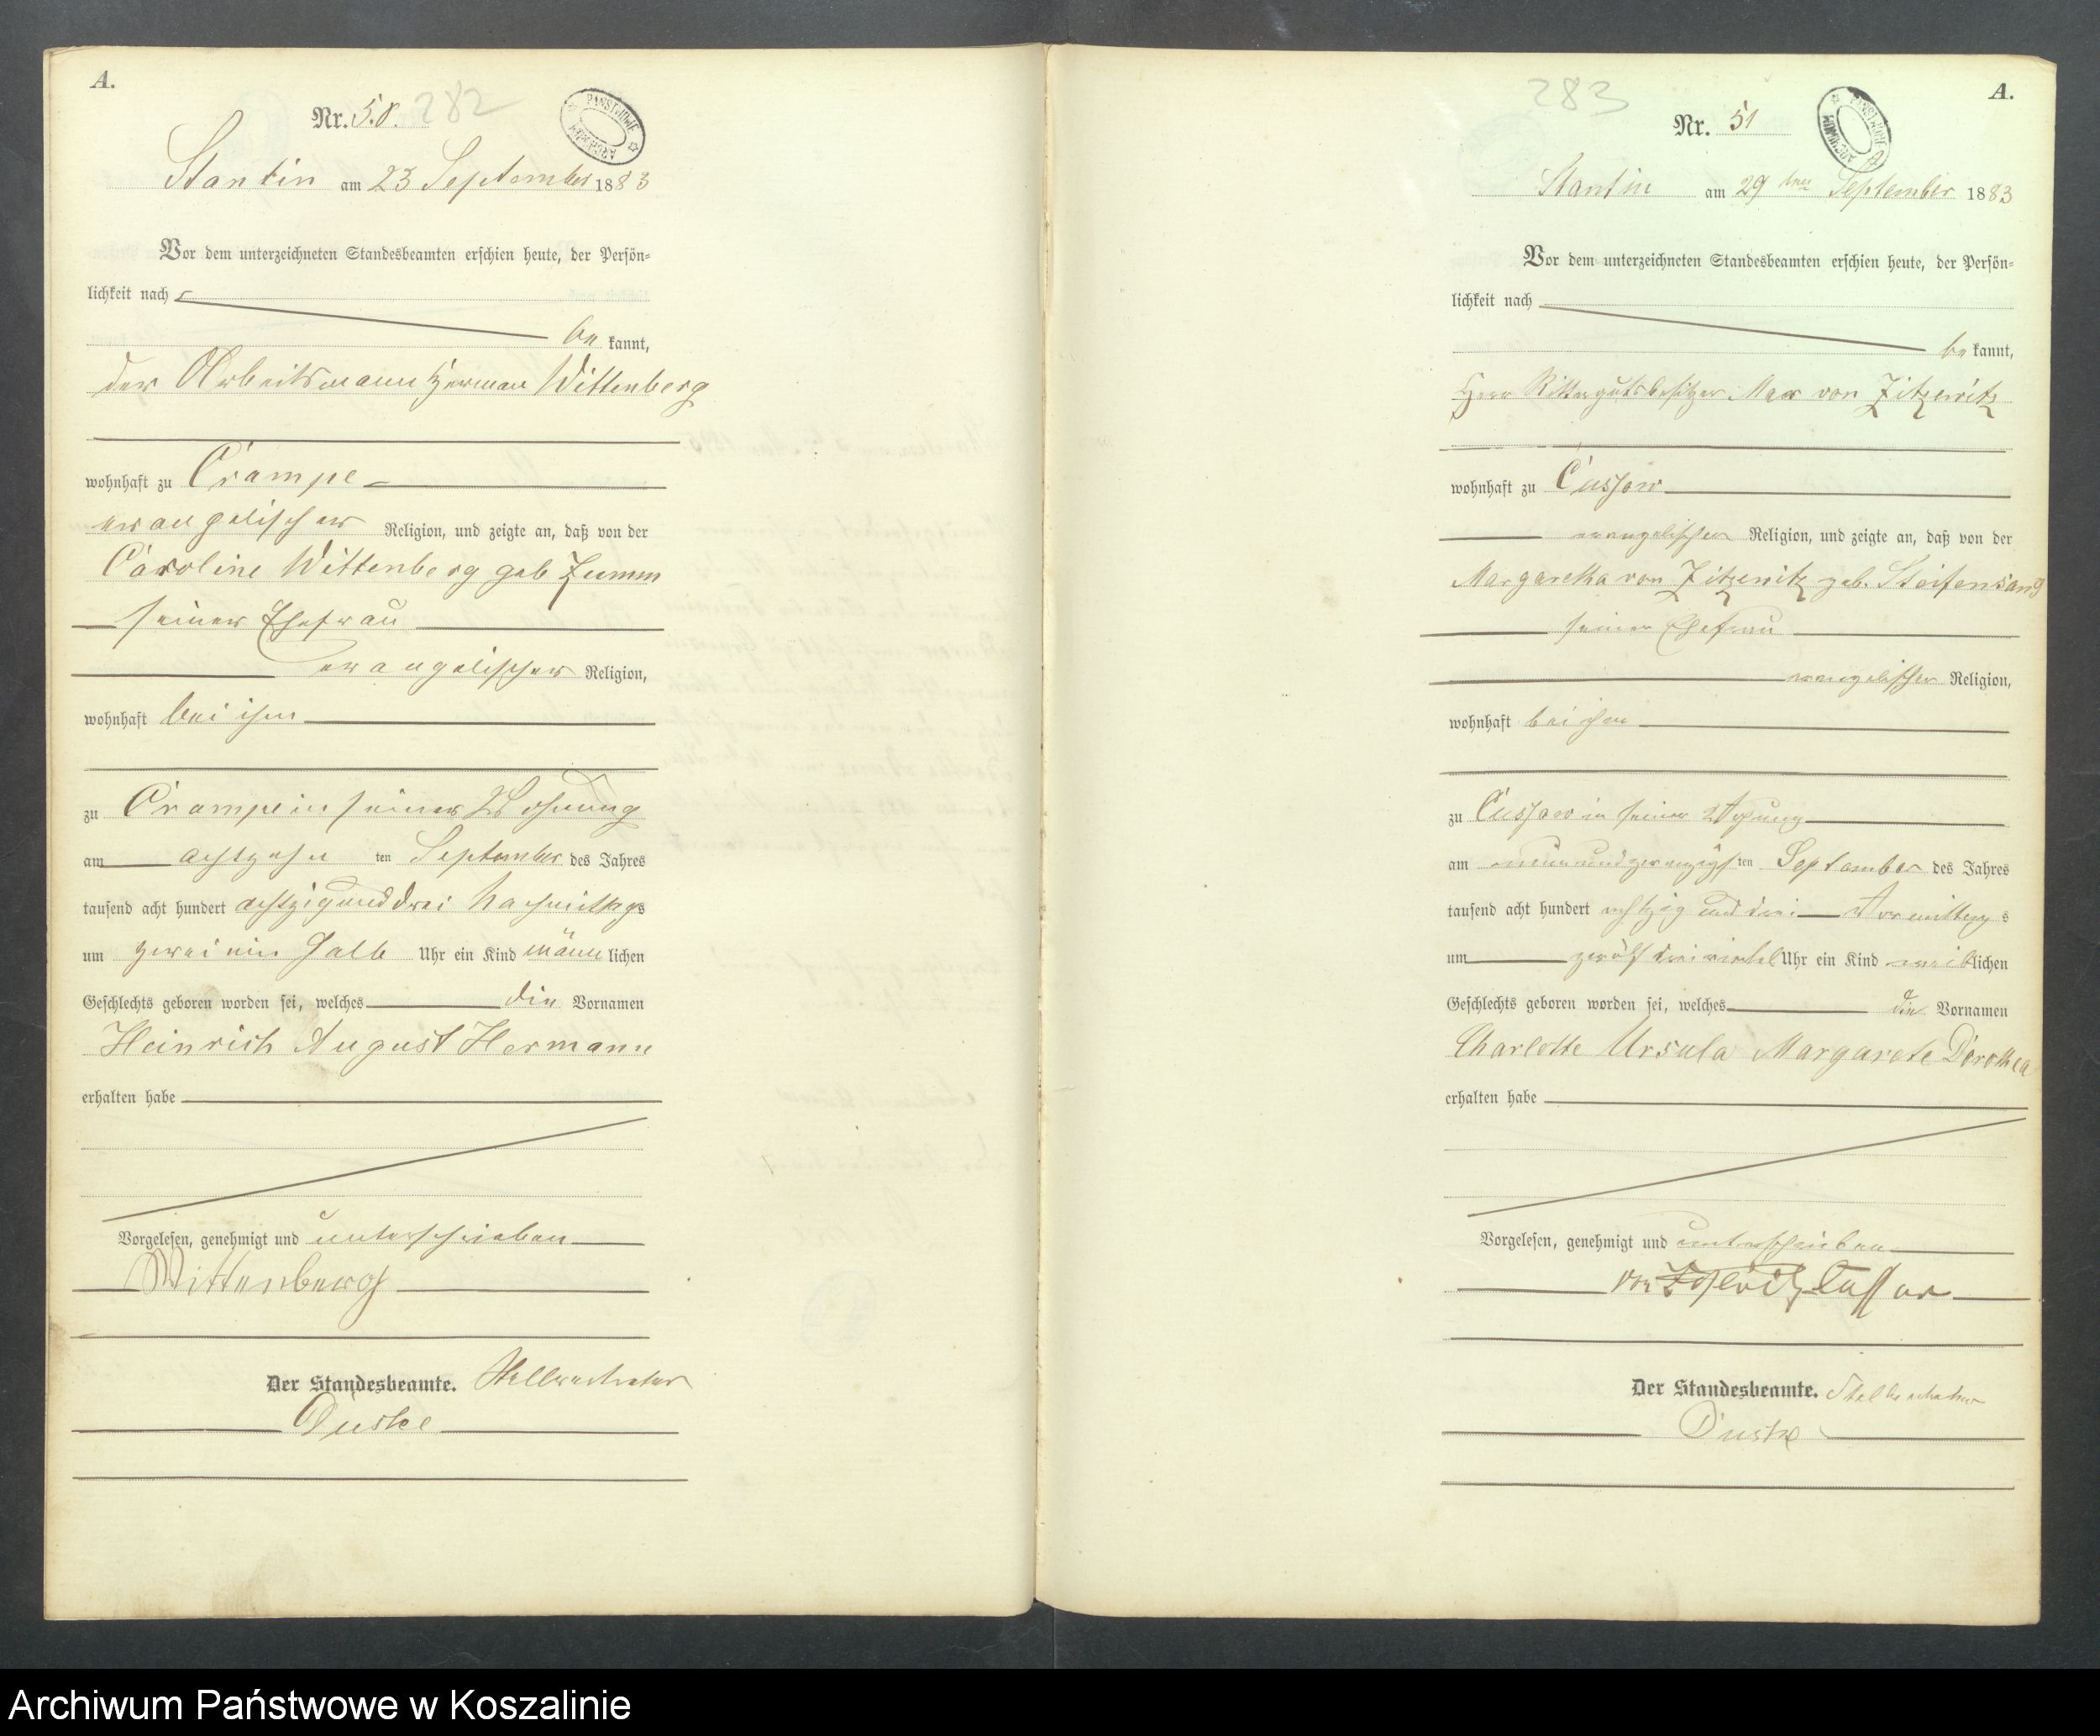 A.
Nr. 50. 282
PAŃSTWOWE ARCHIWUM
Stantin am 23 September 1883
Vor dem unterzeichneten Standesbeamten erschien heute, der Persön=
lichkeit nach
be kannt,
der Arbeitsmann Herman Wittenberg
wohnhaft zu Crampe
evangelischer Religion, und zeigte an, daß von der
Caroline Wittenberg geb Zumm
seiner Ehefrau
evangelischer Religion,
wohnhaft bei ihm
zu Crampe in seiner Wohnung
am achtzehn ten September des Jahres
tausend acht hundert achtzig und drei Nachmittags
um zwei ein halb Uhr ein Kind männlichen
Geschlechts geboren worden sei, welches die Vornamen
Heinrich August Hermann
erhalten habe
Vorgelesen, genehmigt und unterschrieben
Wittenberg
Der Standesbeamte. Stellvertreter
Duske
283
A.
Nr. 51
PAŃSTWOWE ARCHIWUM
Stantin am 29 ten September 1883
Vor dem unterzeichneten Standesbeamten erschien heute, der Persön=
lichkeit nach
be kannt,
Herr Rittergutsbesitzer Max von Zitzewitz
wohnhaft zu Cussow
evangelischer Religion, und zeigte an, daß von der
Margaretha von Zitzewitz geb. Steifensand
seiner Ehefrau
evangelischer Religion,
wohnhaft bei ihm
zu Cussow in seiner Wohnung
am neunundzwanzigsten September des Jahres
tausend acht hundert achtzig und drei Vormittags
um zwölf dreiviertel Uhr ein Kind weiblichen
Geschlechts geboren worden sei, welches die Vornamen
Charlotte Ursula Margarete Dorothea
erhalten habe
Vorgelesen, genehmigt und unterschrieben
von Zitzewitz Cussow
Der Standesbeamte. Stellvertreter
Duske
Archiwum Państwowe w Koszalinie